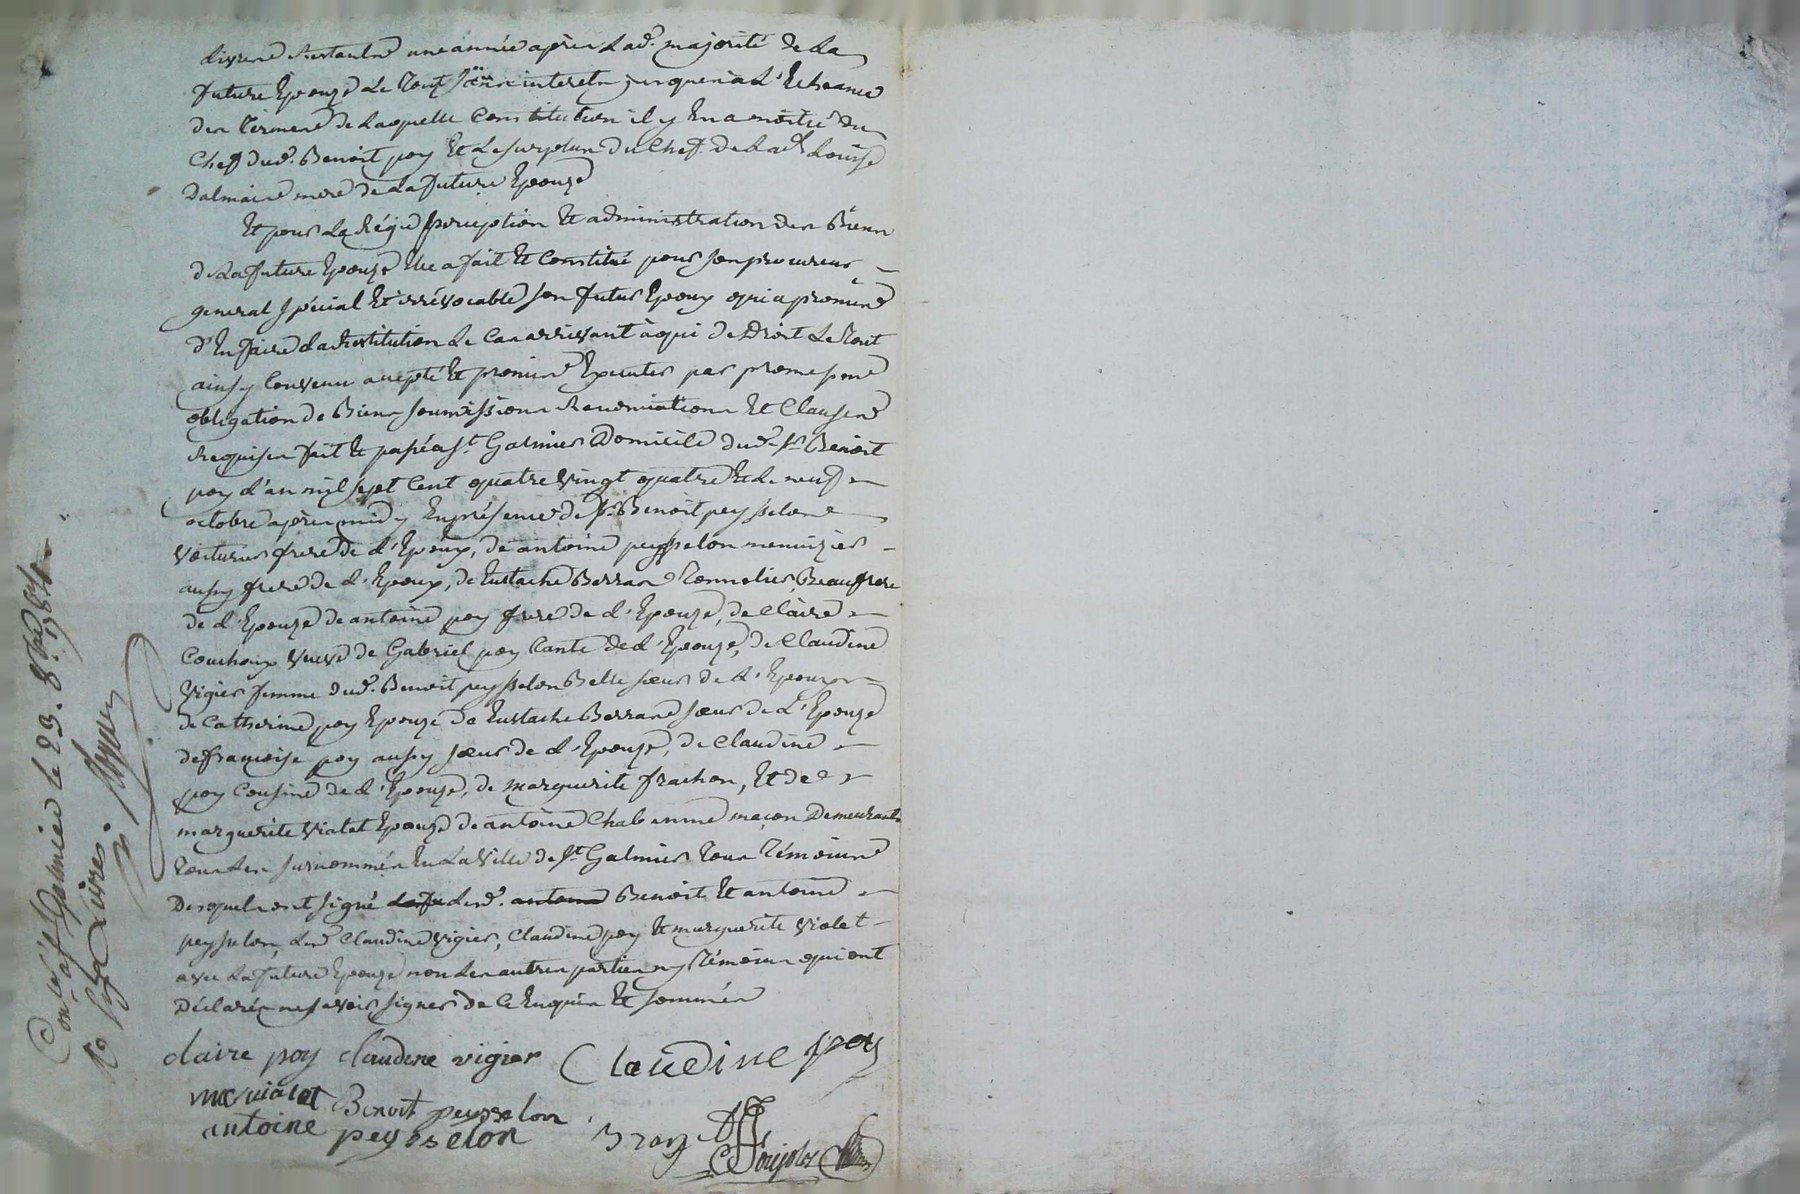 livres restantes une année après lad. majorité de la
future Epouze Le Tout sans interetn jusques à L'Echeance
des termes de laquelle Constitution il y En a moitié du
Chef dud. Benoit poy Et Le surplus du Chef de Lad. Louise
Dalmaine mere de La future Epouze
Et pour La Régie perception Et administration des Biens
de La future Epouze Elle a fait Et Constitué pour son procureur
general spécial Et irrévocable son futur Epoux qui a promis
d'En faire La Restitution Le Cas arrivant à qui de Droit Le Tout
ainsy Convenu accepté Et promis Executer par promesse
obligation de Biens soumissions Renonciations Et Clauses
Requises fait Et passé a St. Galmier Domicile dud. Sr. Benoit
poy L'an mil sept Cent quatre vingt quatre Et Le neuf
octobre après midy En présence de Sr. Benoit peysselon
voiturier frere de L'Epoux, de antoine peysselon menuizier
aussy frere de L'Epoux, de Eustache Berran Tonnelier, Beaufrere
de L'Epouze de antoine poy frere de L'Epouze, de Claire
Couchoux veuve de Gabriel poy tante de L'Epouze, de Claudine
Vigier femme dud. Benoit peysselon Belle sœur de L'Epouze
de Catherine poy Epouze de Eustache Berran sœur de L'Epouze
de françoise poy aussy sœur de L'Epouze, de Claudine
poy Cousine de L'Epouze, de Marguerite frachon, Et de
marguerite Vialet Epouze de antoine maçon Demeurants
Tous Les surnommés En La Ville de St. Galmier Tous Témoins
Desquels ont signé Lesd. antoine Benoit Et antoine
peysselon, Lesd. Claudine vigier, Claudine poy Et marguerite vialet
avec La future Epouze non Les autres parties ny Témoins qui ont
Déclarés ne savoir signer de Ce Enquis Et sommés
claire poy claudine vigier Claudine poy
vialet Benoit peysselon
antoine peysselon
Conlé a St Galmier le 23. 8bre 1784
R Livres